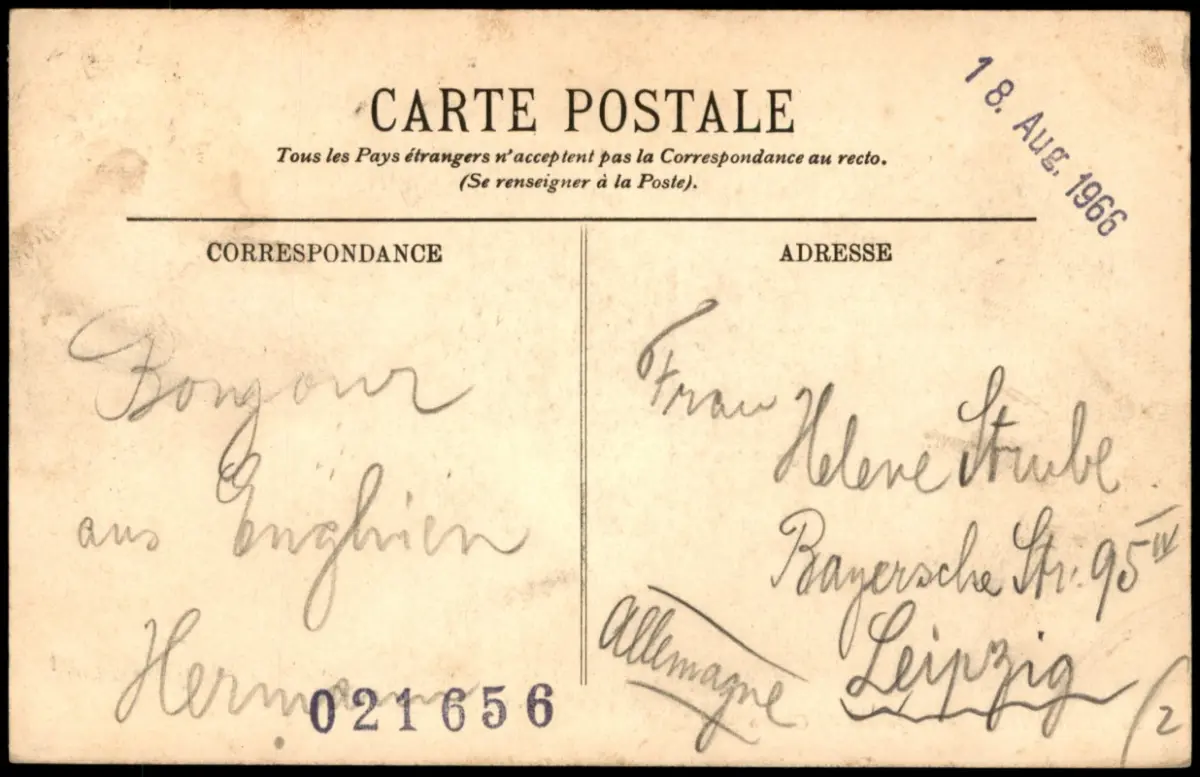 CARTE POSTALE
Tous les Pays étrangers n'acceptent pas la Correspondance au recto.
(Se renseigner à la Poste).
18. Aug. 1966
CORRESPONDANCE
Bonjour
aus Enghien
Hermann
021656
ADRESSE
Frau
Helene Strube
Bayersche Str. 95 IV
Leipzig
Allemagne
(2